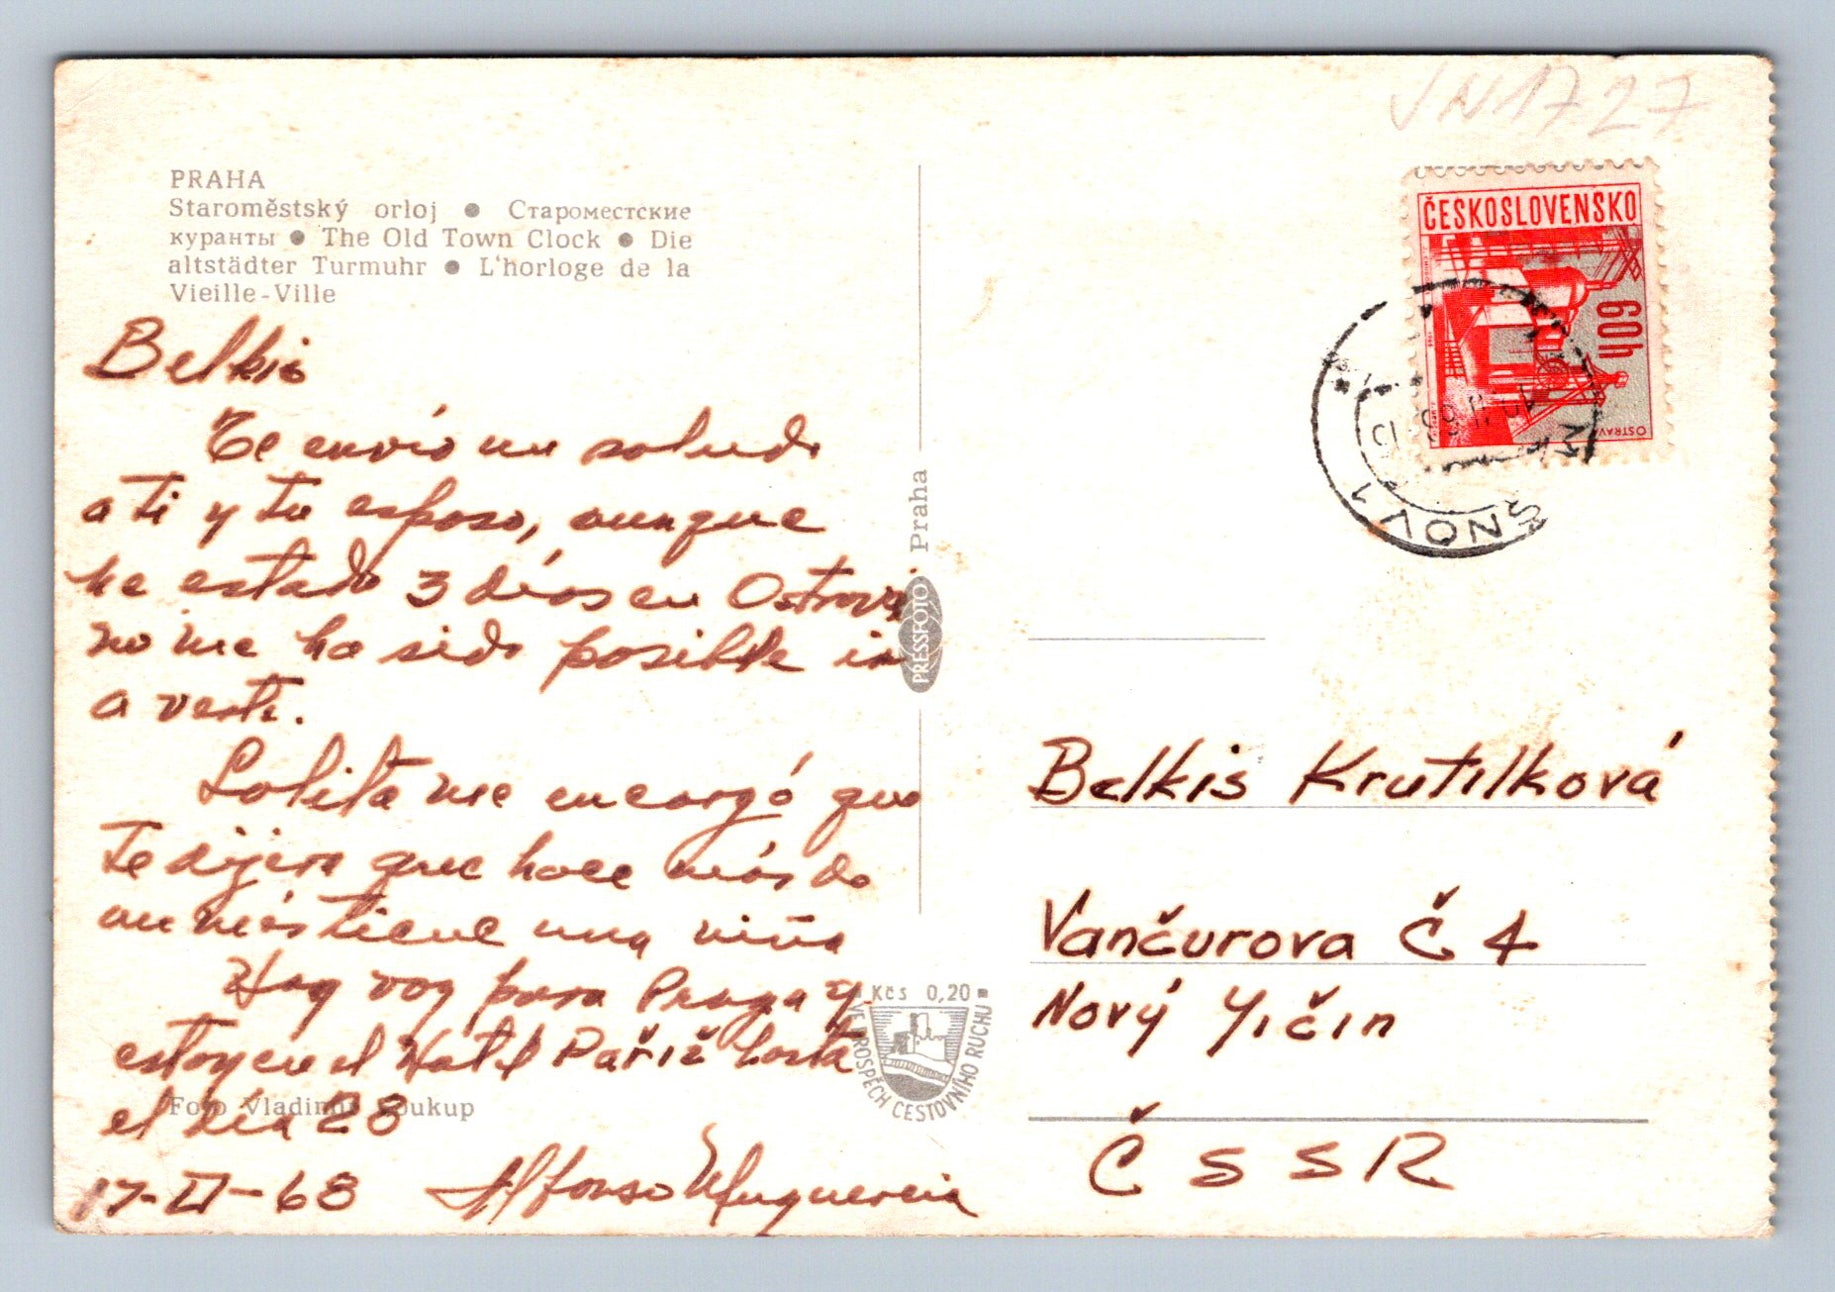 VN1727
PRAHA
Staroměstský orloj ● Староместские
куранты ● The Old Town Clock ● Die
altstädter Turmuhr ● L'horloge de la
Vieille-Ville
Belkis
Te envío un saludo
a ti y tu esposo, aunque
he estado 3 días en Ostrava
no me ha sido posible ir
a verte.
Lolita me encargó que
te dijera que hace más de
un més tiene una niña
Hoy voy para Praga y
estoy en el Hotel Pařiž hasta
el día 28
Foto Vladimír Soukup
17-II-68 Alfonso Muguercia
PRESSFOTO Praha
Kčs 0,20
VE PROSPĚCH CESTOVNÍHO RUCHU
ČESKOSLOVENSKO
60h
OSTRAVA
ŠNOV 1
Belkis Krutilková
Vančurova Č 4
Nový Yičín
ČSSR